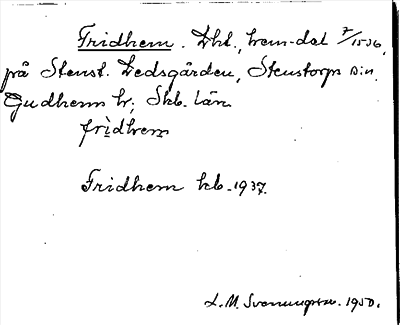 Fridhem. Lht., hem-dal 7/1536,
på Stenst. Ledsgården, Stenstorps sn.
Gudhems hd; Skb. län
frìdhem
Fridhem kb. 1937.
L. M. Svenungsson. 1950.